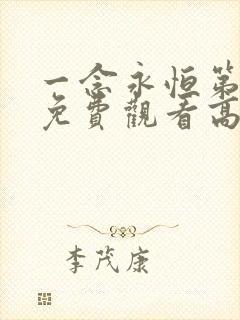 一念永恒第
免費觀看高
李茂康